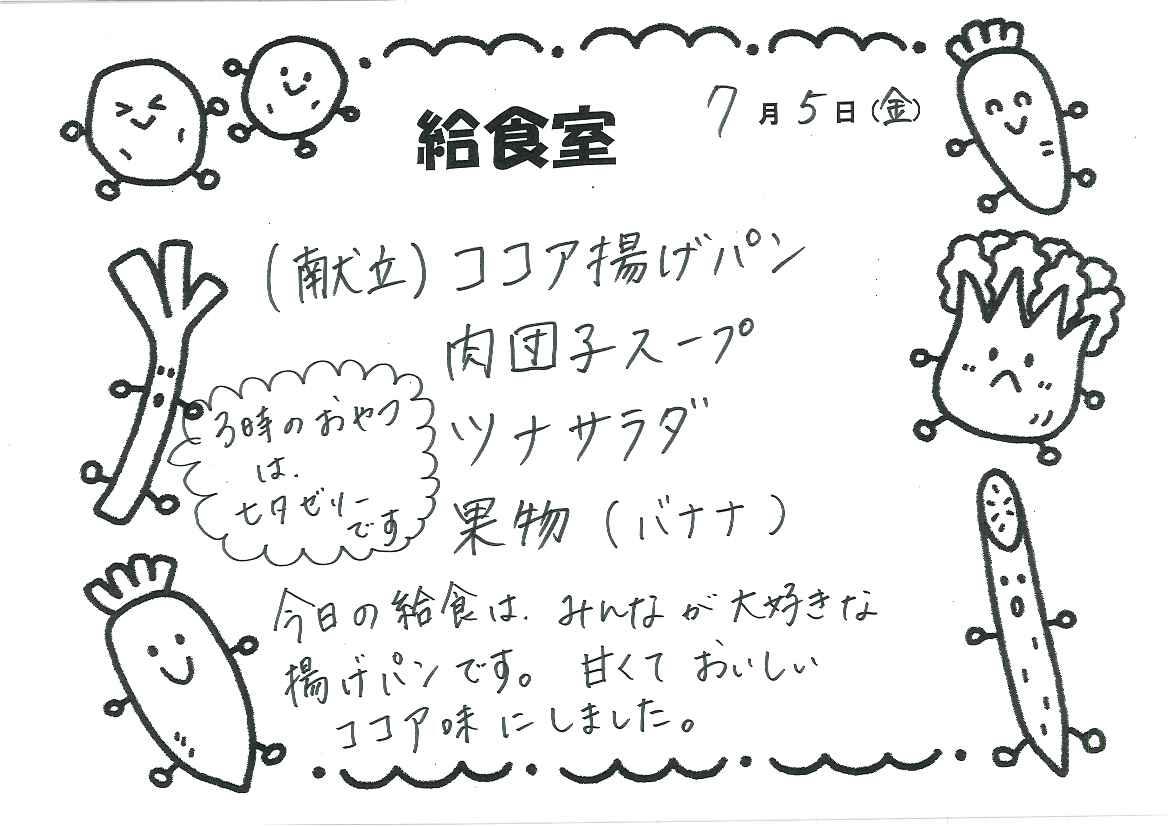 給食室
7月5日(金)
(献立)ココア揚げパン
肉団子スープ
ツナサラダ
果物(バナナ)
3時のおやつ
は、
七夕ゼリー
です
今日の給食は、みんなが大好きな
揚げパンです。甘くておいしい
ココア味にしました。